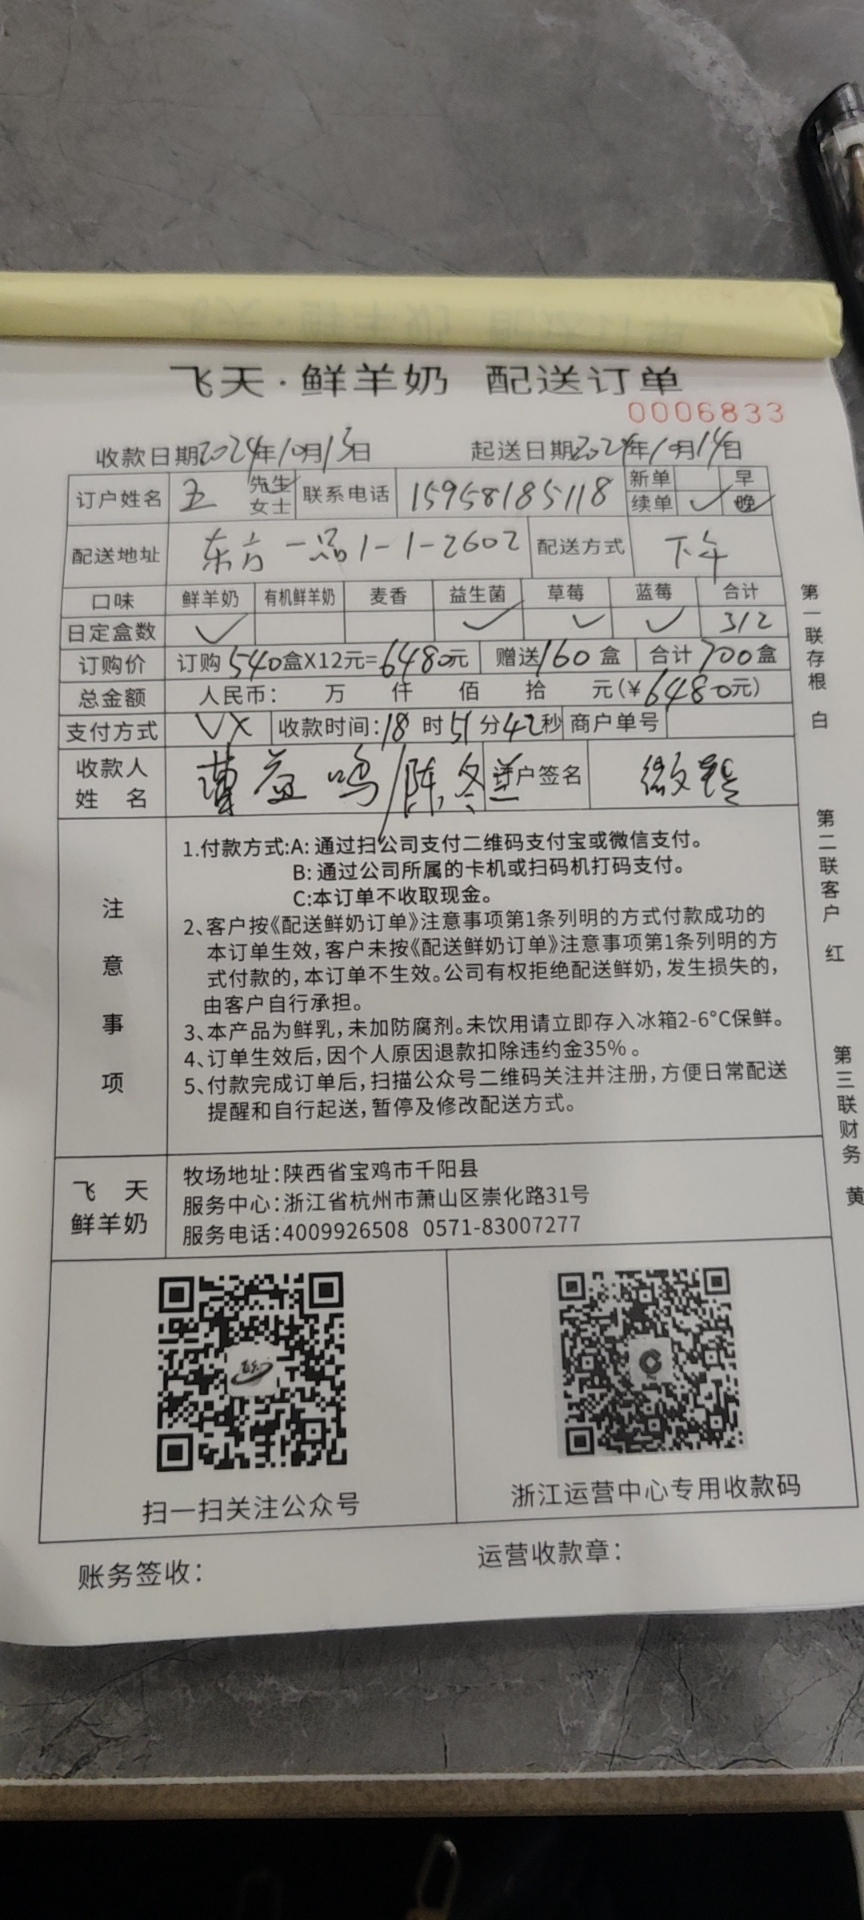 飞天·鲜羊奶 配送订单
0006833
收款日期2024年10月13日 起送日期2024年10月14日
订户姓名 王 先生 女士 联系电话 15958185118 新单 早
续单 ✓ 晚
配送地址 东方一品1-1-2602 配送方式 下午
口味 鲜羊奶 有机鲜羊奶 麦香 益生菌 草莓 蓝莓 合计
日定盒数 ✓ ✓ ✓ ✓ 3/2
订购价 订购540盒X12元=6480元 赠送160盒 合计700盒
总金额 人民币: 万 仟 佰 拾 元(¥6480元)
支付方式 VX 收款时间:18时51分42秒 商户单号
收款人
姓 名 益鸣/陈冬莲 户签名 微
注意事项
1.付款方式:A: 通过扫公司支付二维码支付宝或微信支付。
B: 通过公司所属的卡机或扫码机打码支付。
C:本订单不收取现金。
2、客户按《配送鲜奶订单》注意事项第1条列明的方式付款成功的
本订单生效,客户未按《配送鲜奶订单》注意事项第1条列明的方
式付款的,本订单不生效。公司有权拒绝配送鲜奶,发生损失的,
由客户自行承担。
3、本产品为鲜乳,未加防腐剂。未饮用请立即存入冰箱2-6°C保鲜。
4、订单生效后,因个人原因退款扣除违约金35%。
5、付款完成订单后,扫描公众号二维码关注并注册,方便日常配送
提醒和自行起送,暂停及修改配送方式。
飞天
鲜羊奶
牧场地址:陕西省宝鸡市千阳县
服务中心:浙江省杭州市萧山区崇化路31号
服务电话:4009926508 0571-83007277
扫一扫关注公众号
浙江运营中心专用收款码
账务签收:
运营收款章:
第一联存根 白
第二联客户 红
第三联财务 黄